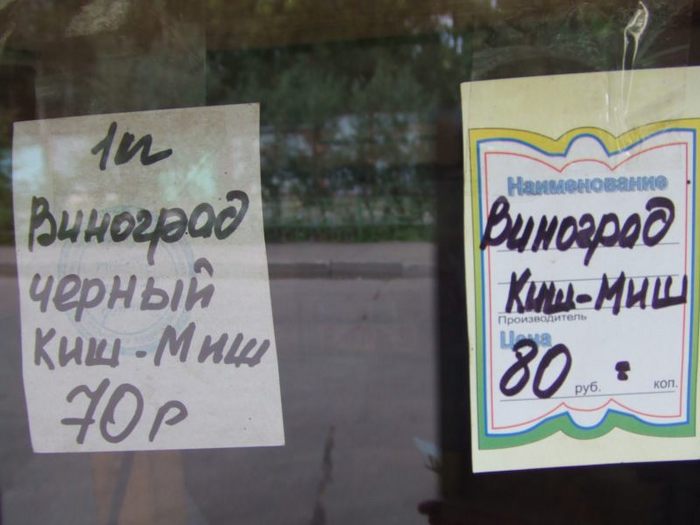 1кг
Виноград
черный
Киш-Миш
70р
Наименование
Виноград
Киш-Миш
Производитель
Цена
80 руб. - коп.